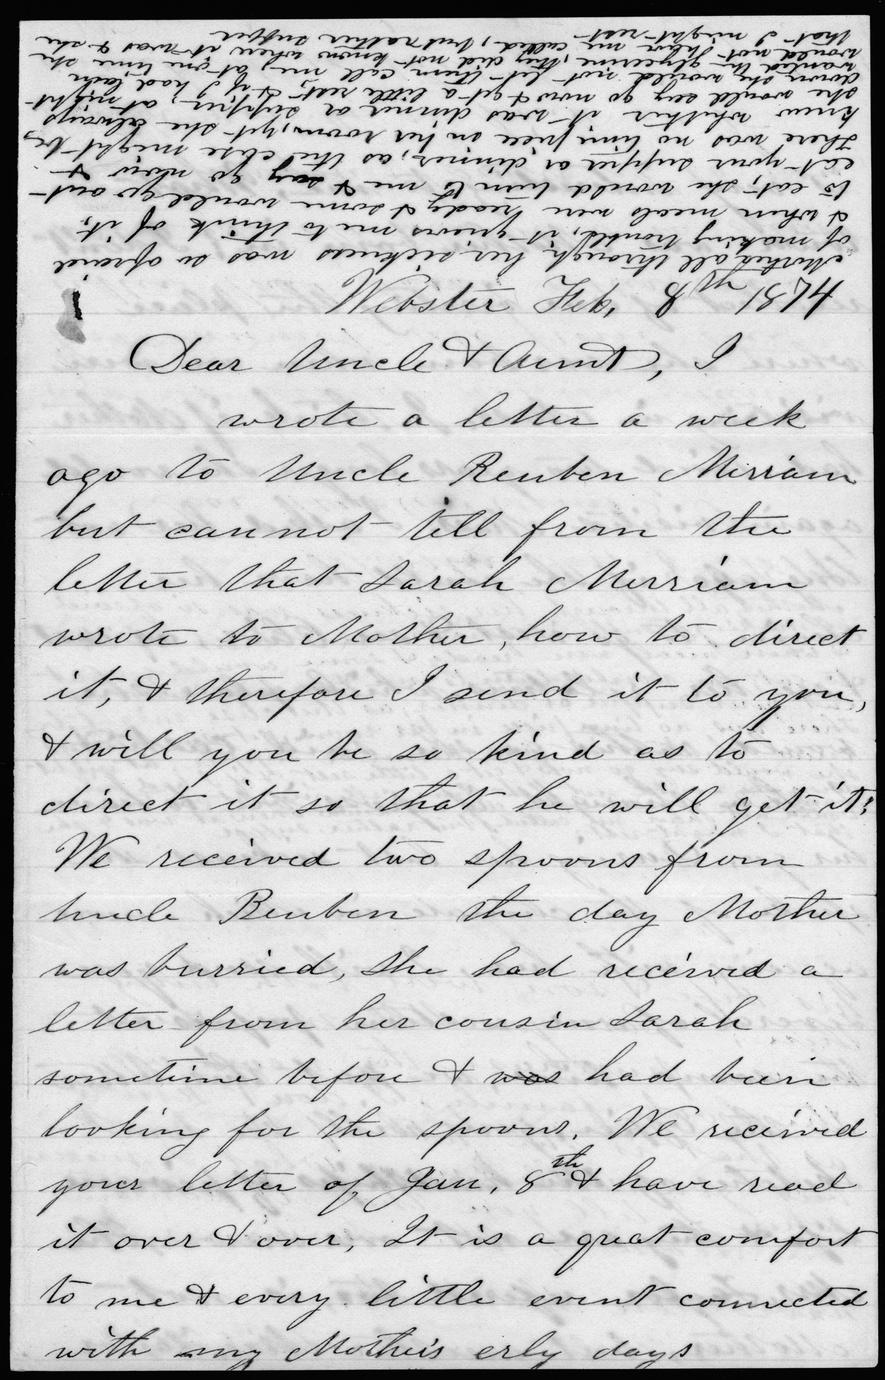 Mother all through her sickness was so afraid
of making trouble, it grieves me to think of it,
& when meals were ready & some would go out
to eat, she would turn to me & say go now &
eat your supper or dinner, as the case might be
there was no time piece in her room, yet she always
knew whether it was dinner or supper, at night
she would say go now & get a little rest, & if I had lain
down she would not let them call me, at one time she
wanted the glycerine, they did not know where it was & she
would not have me called, but rather suffer
that I might rest
Webster Feb, 8th 1874
Dear Uncle & Aunt, I
wrote a letter a week
ago to Uncle Reuben Merriam
but cannot tell from the
letter that Sarah Merriam
wrote to Mother, how to direct
it, & therefore I send it to you,
& will you be so kind as to
direct it so that he will get it;
We received two spoons from
Uncle Reuben the day Mother
was burried, she had received a
letter from her cousin Sarah
sometime before & was had been
looking for the spoons. We received
your letter of Jan. 8th & have read
it over & over, It is a great comfort
to me & every little event connected
with my Mother's erly days